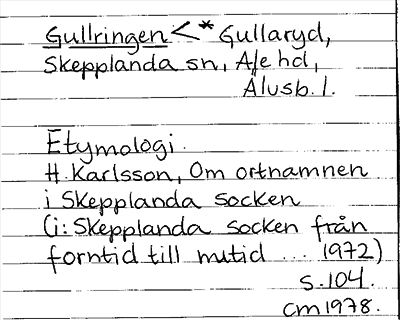 Gullringen < * Gullaryd,
Skepplanda sn, Ale hd,
Älvsb. l.
Etymologi.
H. Karlsson, Om ortnamnen
i Skepplanda socken
(i: Skepplanda socken från
forntid till nutid ... 1972)
s. 104.
cm 1978.